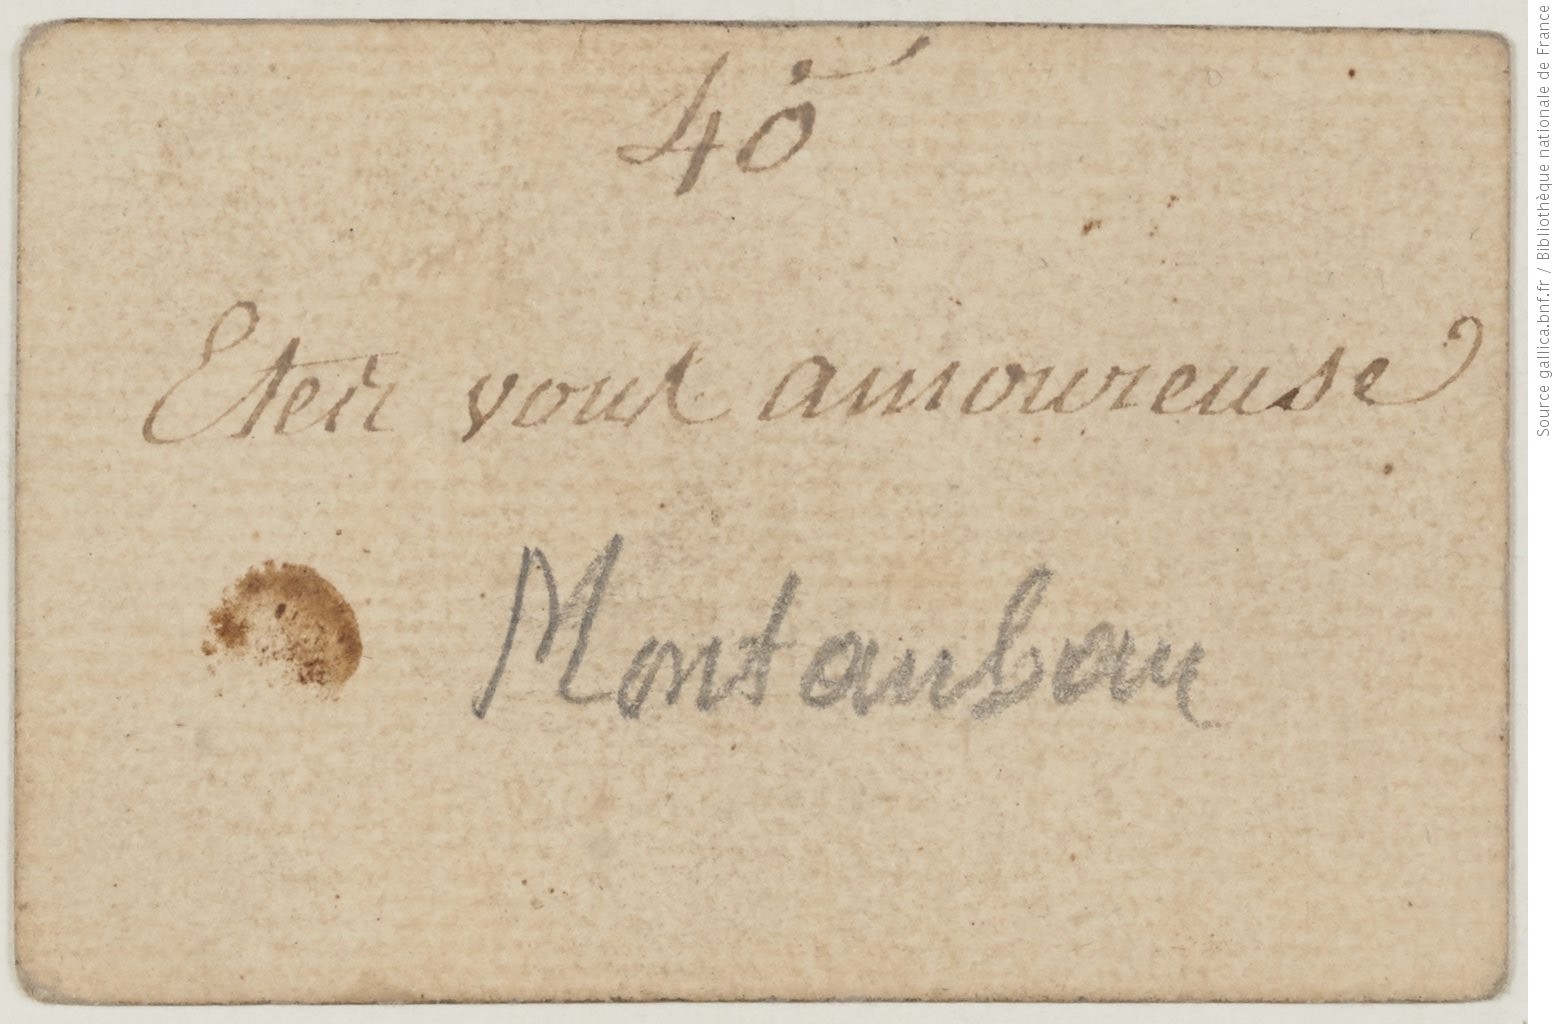 40
Etes vous amoureuse
Montauban
Source gallica.bnf.fr / Bibliothèque nationale de France